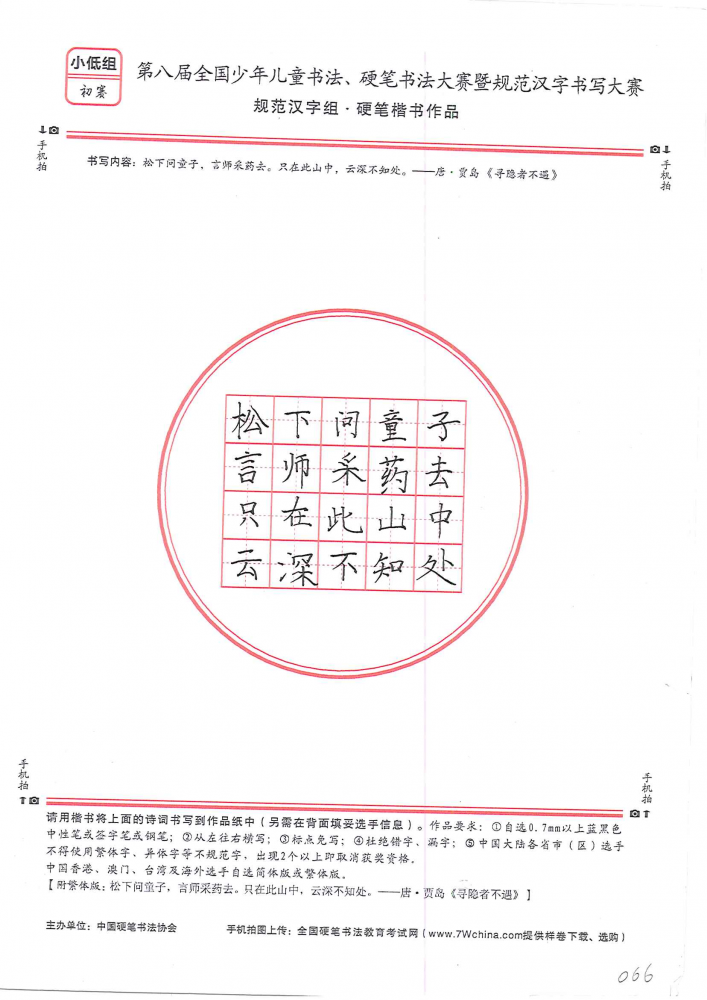 小低组
初赛
第八届全国少年儿童书法、硬笔书法大赛暨规范汉字书写大赛
规范汉字组·硬笔楷书作品
手机拍
手机拍
书写内容：松下问童子，言师采药去。只在此山中，云深不知处。——唐·贾岛《寻隐者不遇》
松下问童子
言师采药去
只在此山中
云深不知处
手机拍
手机拍
请用楷书将上面的诗词书写到作品纸中（另需在背面填妥选手信息）。作品要求：①自选0.7mm以上蓝黑色
中性笔或签字笔或钢笔；②从左往右横写；③标点免写；④杜绝错字、漏字；⑤中国大陆各省市（区）选手
不得使用繁体字、异体字等不规范字，出现2个以上即取消获奖资格。
中国香港、澳门、台湾及海外选手自选简体版或繁体版。
【附繁体版：松下问童子，言师采药去。只在此山中，云深不知处。——唐·贾岛《寻隐者不遇》】
主办单位：中国硬笔书法协会
手机拍图上传：全国硬笔书法教育考试网（www.7Wchina.com提供样卷下载、选购）
066